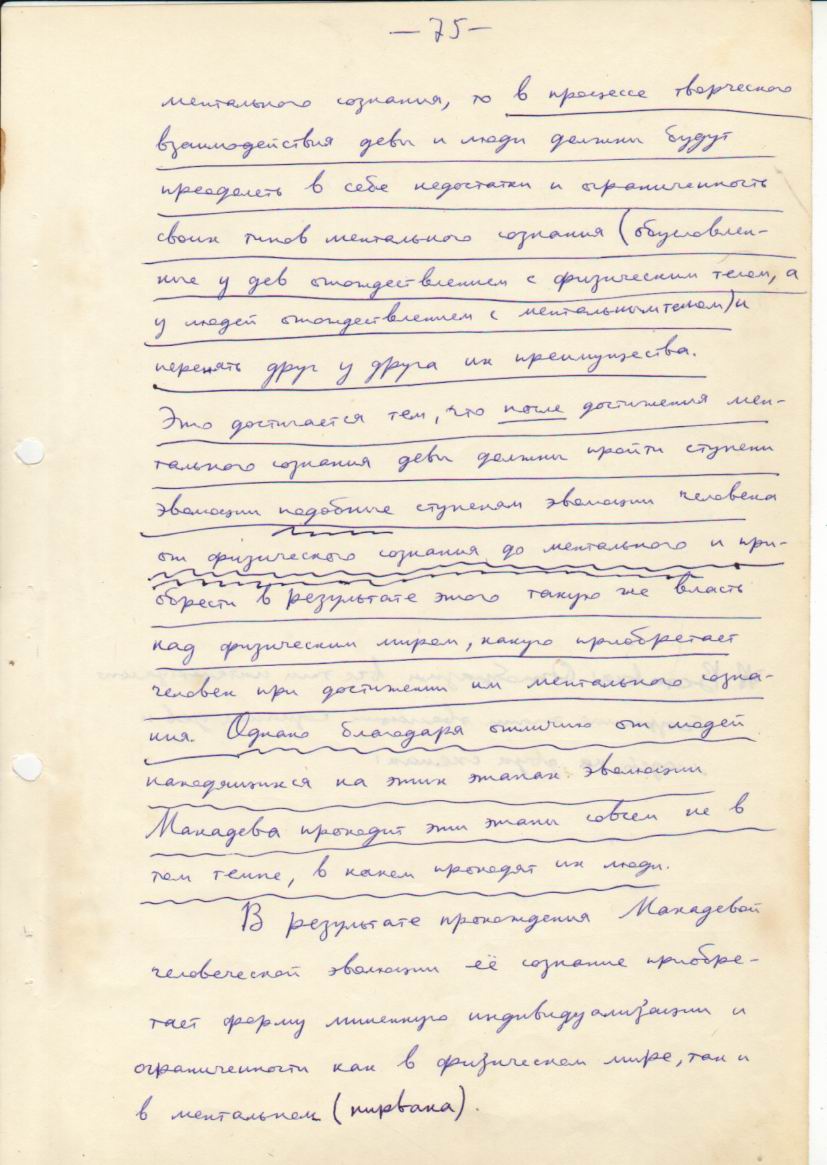 — 75 —
ментального сознания, то в процессе творческого
взаимодействия девы и люди должны будут
преодолеть в себе недостатки и ограниченность
своих типов ментального сознания (обусловлен-
ные у дев отождествлением с физическим телом, а
у людей отождествлением с ментальным телом) и
перенять друг у друга их преимущества.
Это достигается тем, что после достижения мен-
тального сознания девы должны пройти ступени
эволюции подобные ступеням эволюции человека
от физического сознания до ментального и при-
обрести в результате этого такую же власть
над физическим миром, какую приобретает
человек при достижении им ментального созна-
ния. Однако благодаря отличию от людей
находящихся на этих этапах эволюции
Махадева проходит эти этапы совсем не в
том темпе, в каком проходят их люди.
В результате прохождения Махадевой
человеческой эволюции её сознание приобре-
тает форму лишенную индивидуализации и
ограниченности как в физическом мире, так и
в ментальном (нирвана).